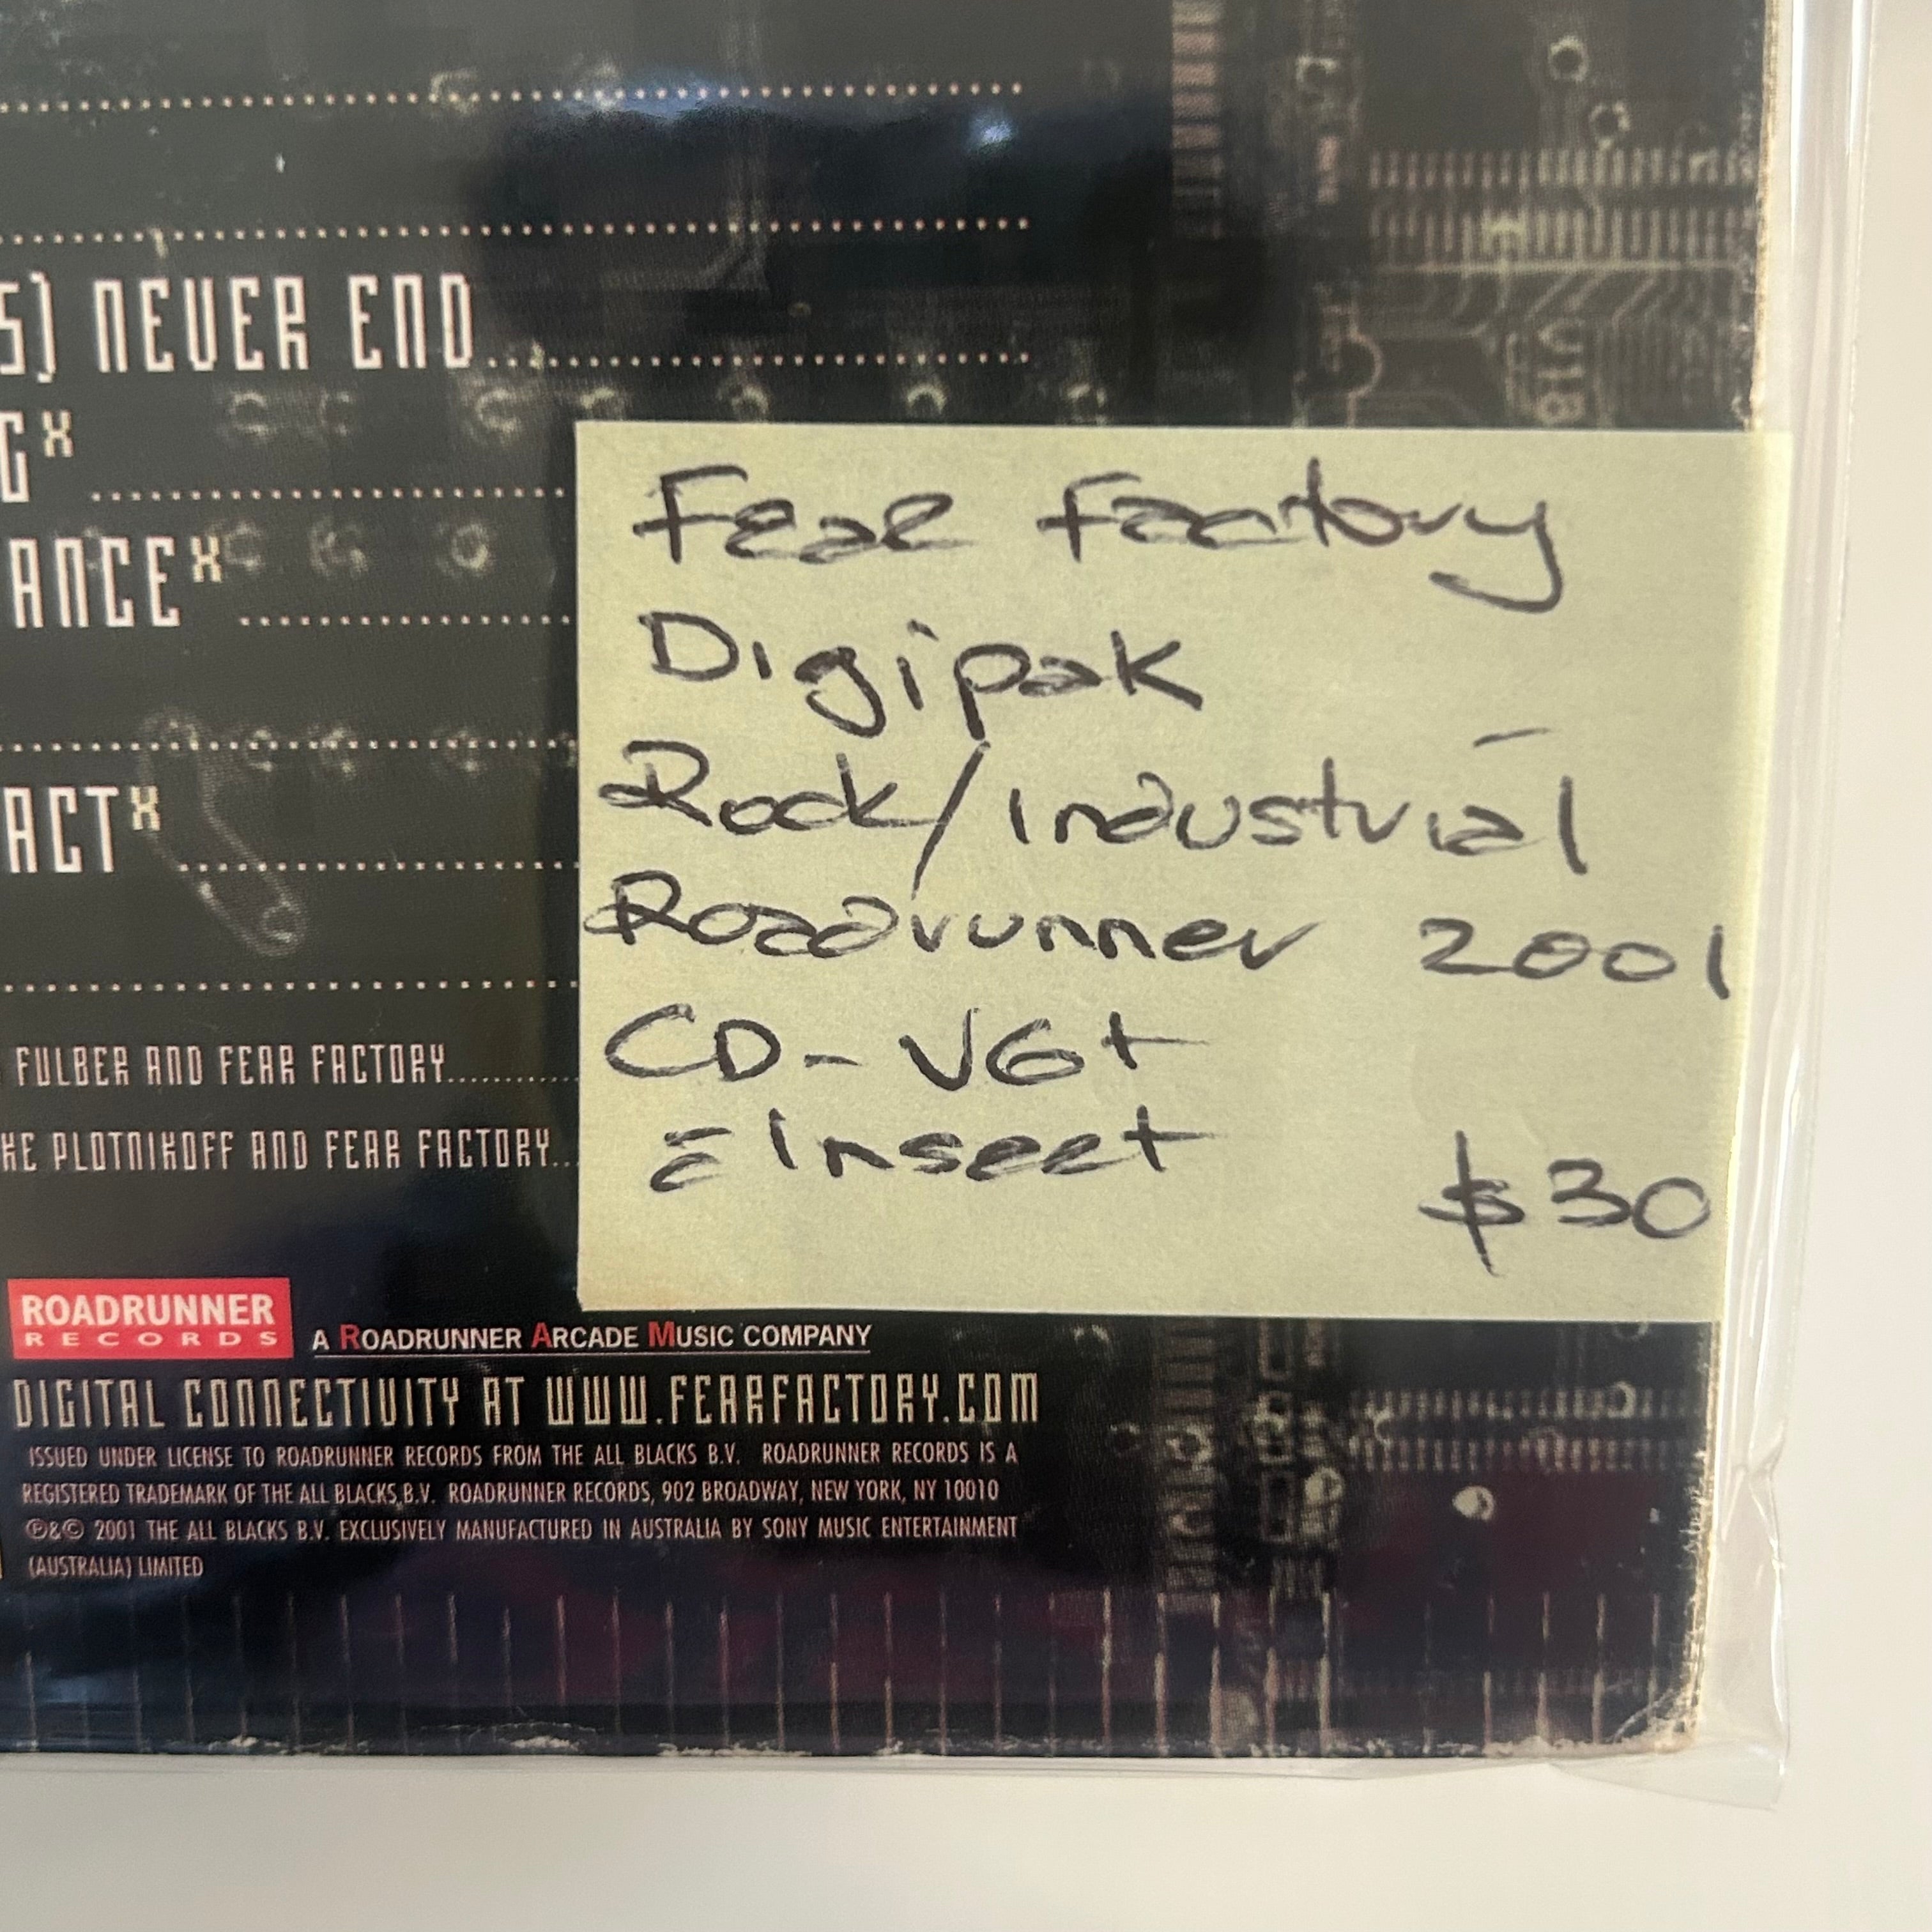 S) NEVER END
G^X
ANCE^X
ACT^X
FULBER AND FEAR FACTORY
KE PLOTNIKOFF AND FEAR FACTORY
Fear Factory
Digipak
Rock/Industrial
Roadrunner 2001
CD- VG+
Insect
$30
ROADRUNNER
RECORDS
A ROADRUNNER ARCADE MUSIC COMPANY
DIGITAL CONNECTIVITY AT WWW.FEARFACTORY.COM
ISSUED UNDER LICENSE TO ROADRUNNER RECORDS FROM THE ALL BLACKS B.V. ROADRUNNER RECORDS IS A
REGISTERED TRADEMARK OF THE ALL BLACKS B.V. ROADRUNNER RECORDS, 902 BROADWAY, NEW YORK, NY 10010
℗&© 2001 THE ALL BLACKS B.V. EXCLUSIVELY MANUFACTURED IN AUSTRALIA BY SONY MUSIC ENTERTAINMENT
(AUSTRALIA) LIMITED